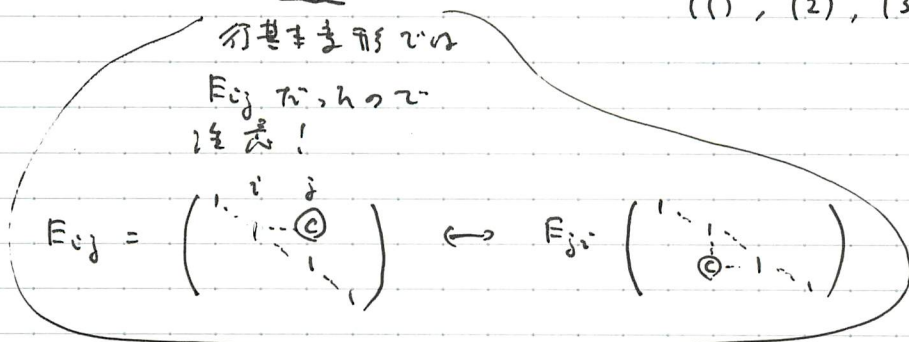 (1), (2), (3
行基本変形では
Eij だったので
注意!
i j
Eij = ( 1 1 --- c 1 1 ) ↔ Eji ( 1 1 c -- 1 1 )